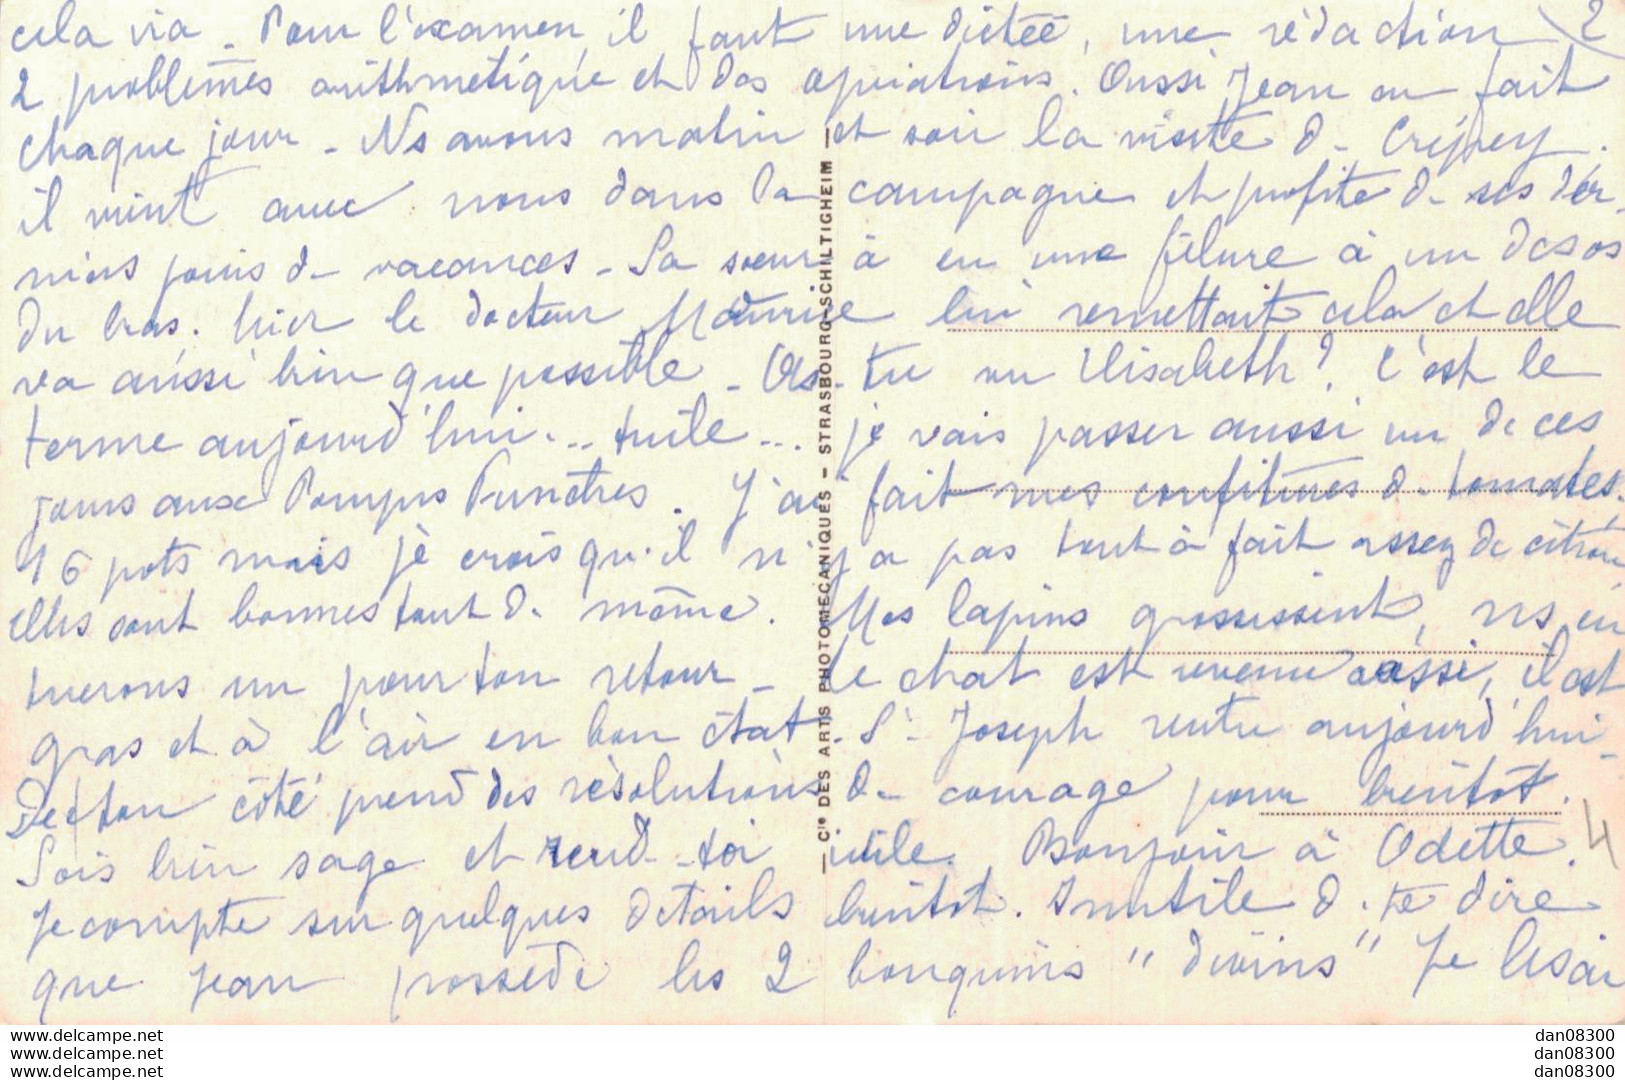 cela va _ Pour l'examen il faut une dictée, une rédaction 2
2 problèmes arithmétique et des opérations. Aussi Jean en fait
chaque jour _ Ns avons matin et soir la visite de Crépey.
il vient avec nous dans la campagne et profite de ses der-
niers jours de vacances _ Sa sœur a eu une fêlure à un des os
du bras. hier le docteur Maurice lui remettait cela et elle
va aussi bien que possible _ As-tu vu Elisabeth? C'est le
terme aujourd'hui... tuile... je vais passer aussi un de ces
jours aux Pompes Funèbres. J'ai fait mes confitures de tomates.
16 pots mais je crois qu'il n'y a pas tout à fait assez de citron
elles sont bonnes tout de même. Mes lapins grossissent, ns en
tuerons un pour ton retour _ Le chat est revenu aussi, il est
gras et a l'air en bon état _ St Joseph rentre aujourd'hui _
De ton côté prend des résolutions de courage pour bientôt.
Sois bien sage et rend-toi utile. Bonjour à Odette. 4
Je compte sur quelques détails bientôt. Inutile de te dire
que Jean possède les 2 bouquins "divins" Je lisai
— Cie DES ARTS PHOTOMECANIQUES – STRASBOURG-SCHILTIGHEIM —
delcampe.net
delcampe.net
delcampe.net
dan08300
dan08300
dan08300